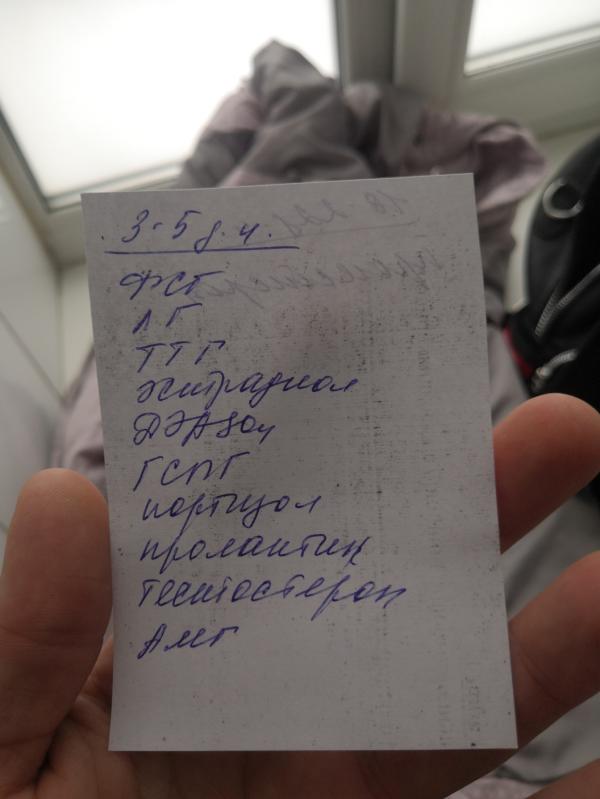 3-5 д.ц.
ФСГ
ЛГ
ТТГ
эстрадиол
ДЭАSO4
ГСПГ
кортизол
пролактин
тестостерон
АМГ